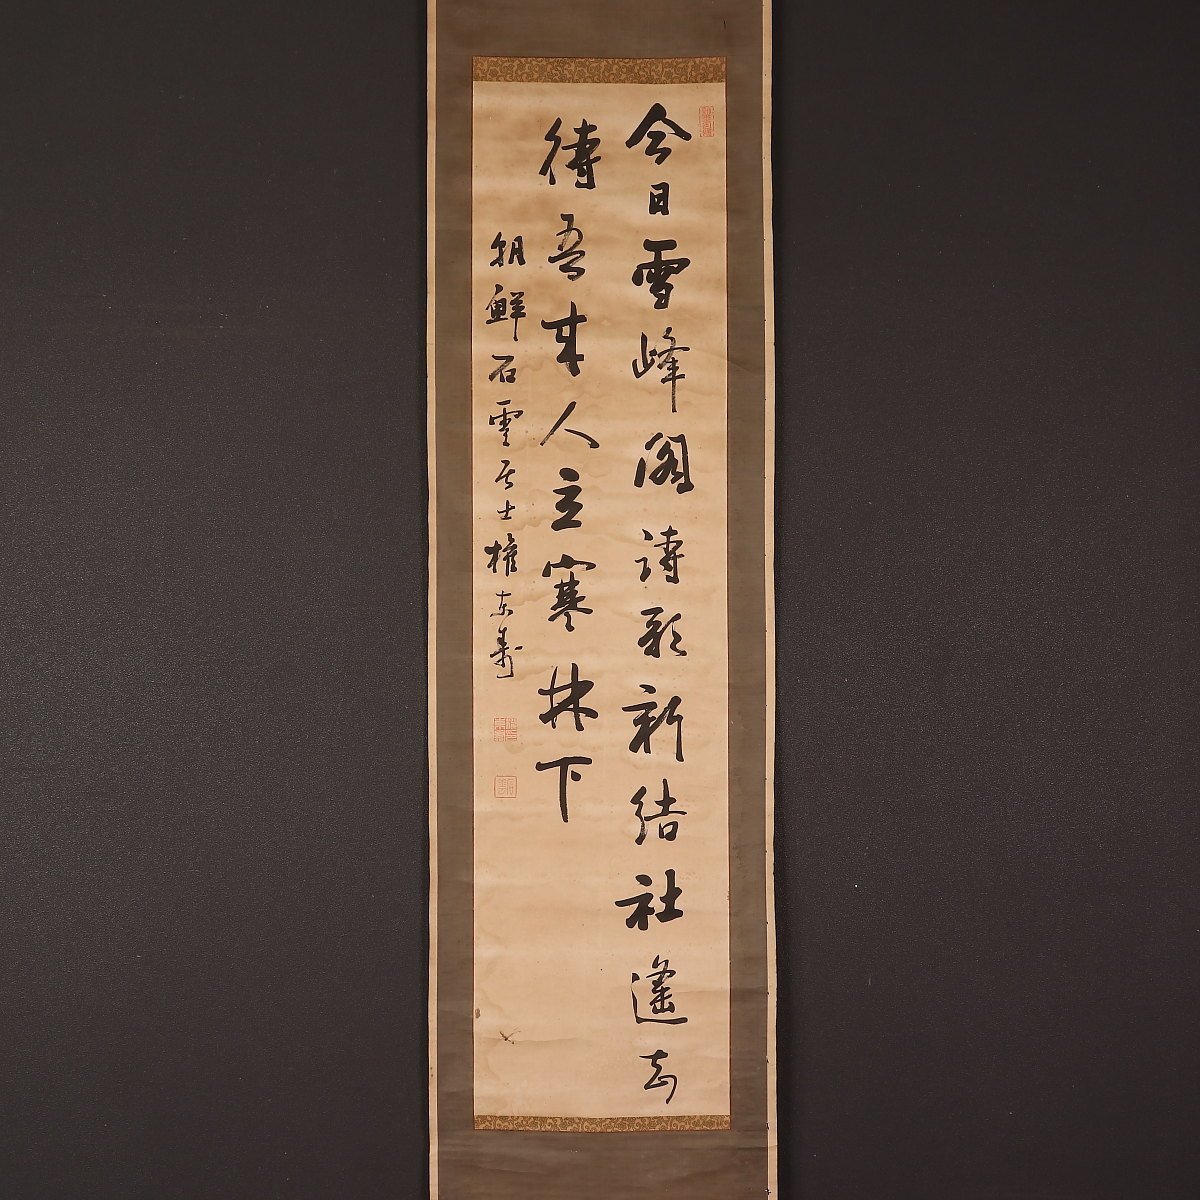 今日雪峰閣詩歌新結社遙知
待吾來人立寒林下
朝鮮石雲居士權東壽